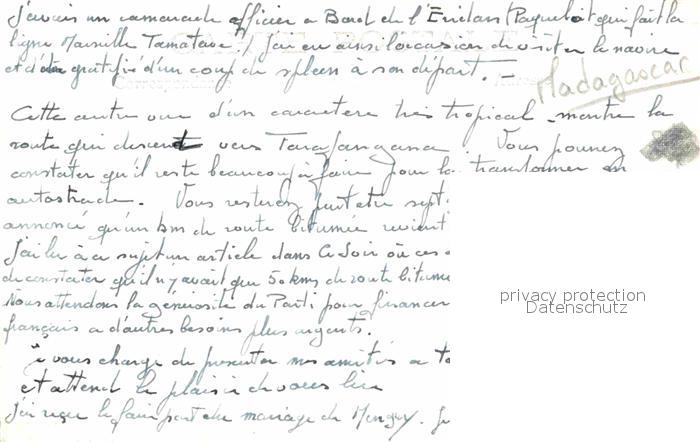 j'avais un camarade officier à Bord de l'Eridan (Paquebot qui fait la
ligne Marseille Tamatave) j'ai eu ainsi l'occasion de visiter le navire
et d'être gratifié d'un coup de spleen à son départ. —
Madagascar
Cette autre vue d'un caractère très tropical montre la
route qui descend vers Tarafangana. Vous pouvez
constater qu'il reste beaucoup à faire pour la transformer en
autostrade. Vous resterez peut être
annoncé qu'un km de route bitumée revient
j'ai lu à ce sujet un article dans Ce Soir où ces
de constater qu'il n'y avait que 50 kms de route bitumé
Nous attendons la générosité du Parti pour financer
français a d'autres besoins plus urgents.
je vous charge de présenter mes amitiés à
et attend le plaisir de vous lire
j'ai reçu le faire part du mariage de
privacy protection
Datenschutz